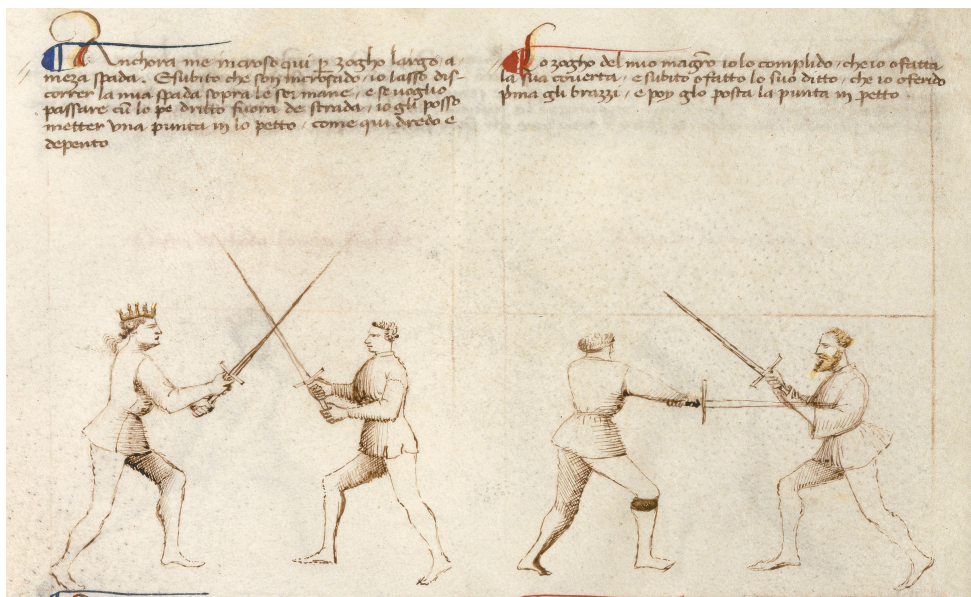 Anchora me incroso qui per zogho largo a
meza spada. E subito che son incrosado, io lasso dis-
correr la mia spada sopra le soi mane, e se voglio
passare cum lo pe dritto fuora de strada, io gli posso
metter una punta in lo petto, come qui dredo e
depento
Lo zogho del mio magistro io lo complido, che io o fatta
la sua coverta, e subito o fatto lo suo ditto, che io ofendo
prima gli brazzi, e poy glo posta la punta in petto.